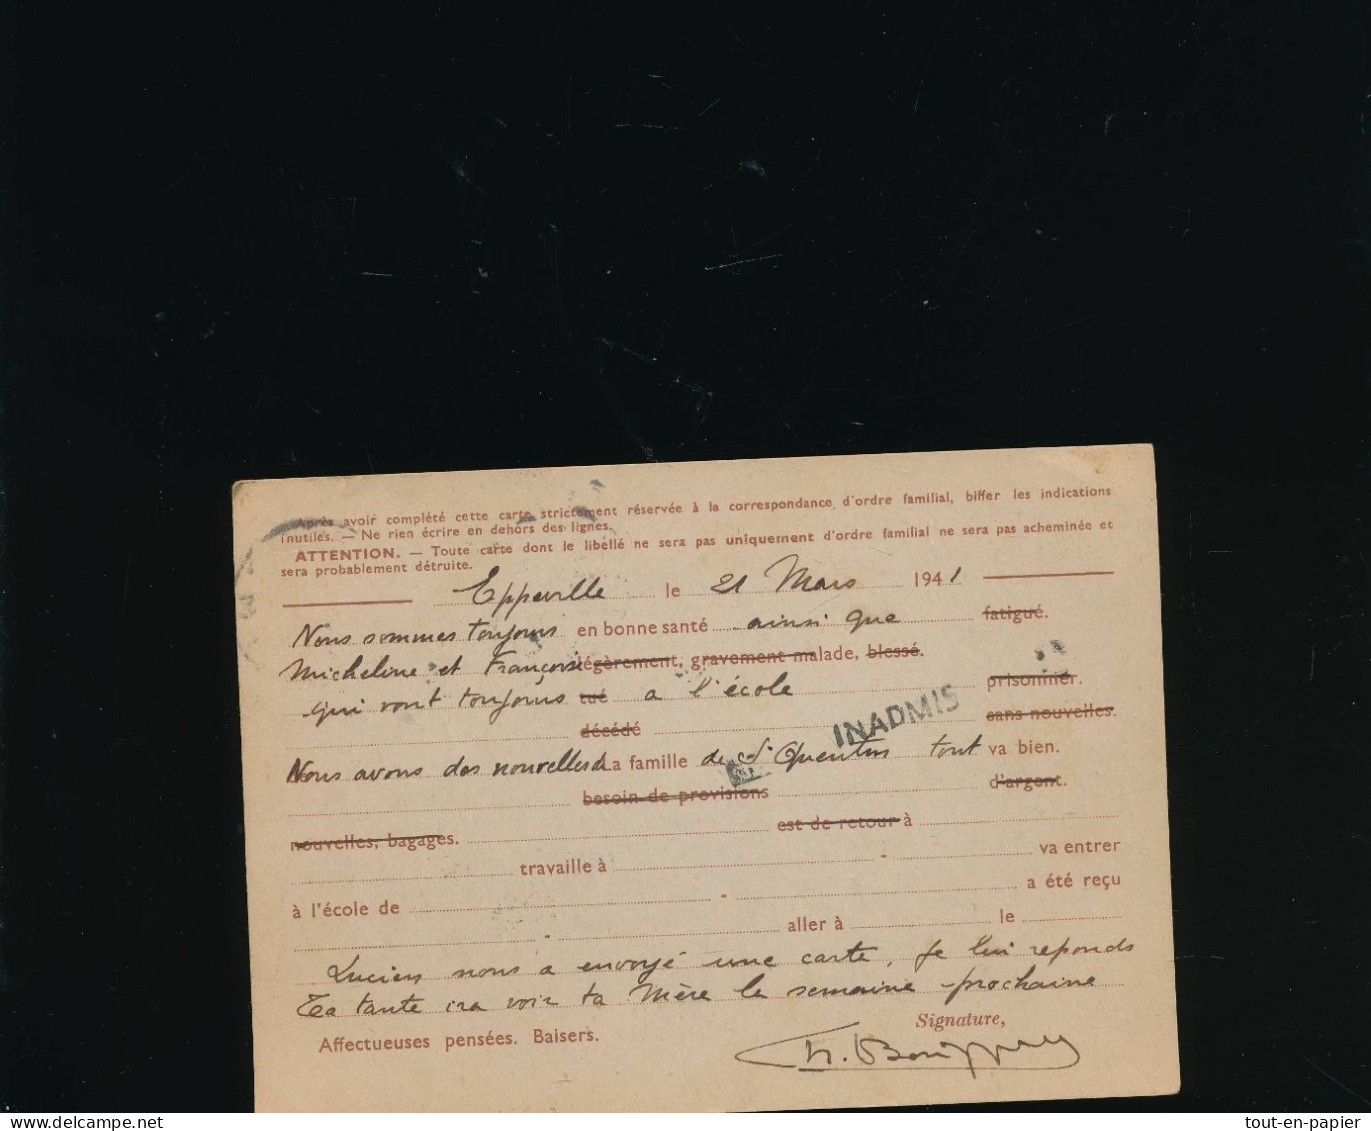 Après avoir complété cette carte strictement réservée à la correspondance d'ordre familial, biffer les indications
inutiles. — Ne rien écrire en dehors des lignes.
ATTENTION. — Toute carte dont le libellé ne sera pas uniquement d'ordre familial ne sera pas acheminée et
sera probablement détruite.
Eppeville le 21 Mars 1941
Nous sommes toujours en bonne santé ainsi que fatigué.
Micheline et Françoise légèrement, gravement malade, blessé.
qui vont toujours tué a l'école prisonnier.
décédé sans nouvelles.
INADMIS
Nous avons des nouvelles d La famille de St Quentin tout va bien.
besoin de provisions d'argent.
nouvelles, bagages. est de retour à
travaille à - va entrer
à l'école de - a été reçu
- aller à le
Lucien nous a envoyé une carte, je lui reponds
Ta tante ira voir ta Mère la semaine prochaine
Affectueuses pensées. Baisers.
Signature,
tout-en-papier